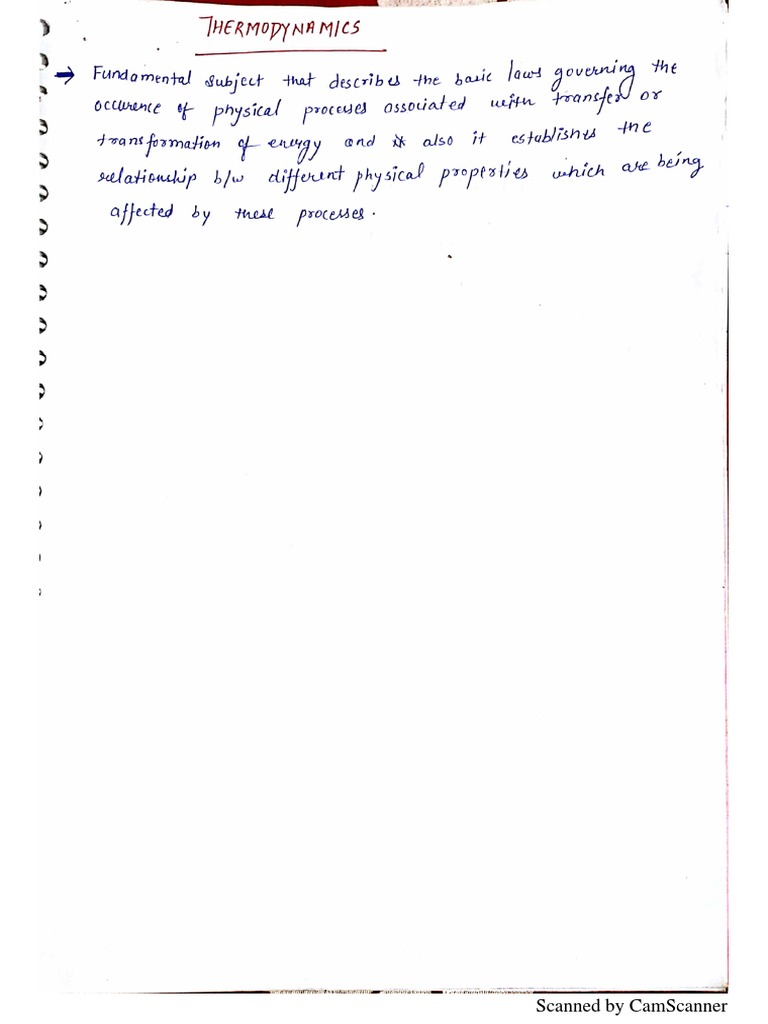 THERMODYNAMICS
→ Fundamental subject that describes the basic laws governing the
occurence of physical processes associated with transfer or
transformation of energy and it also it establishes the
relationship b/w different physical properties which are being
affected by these processes.
Scanned by CamScanner